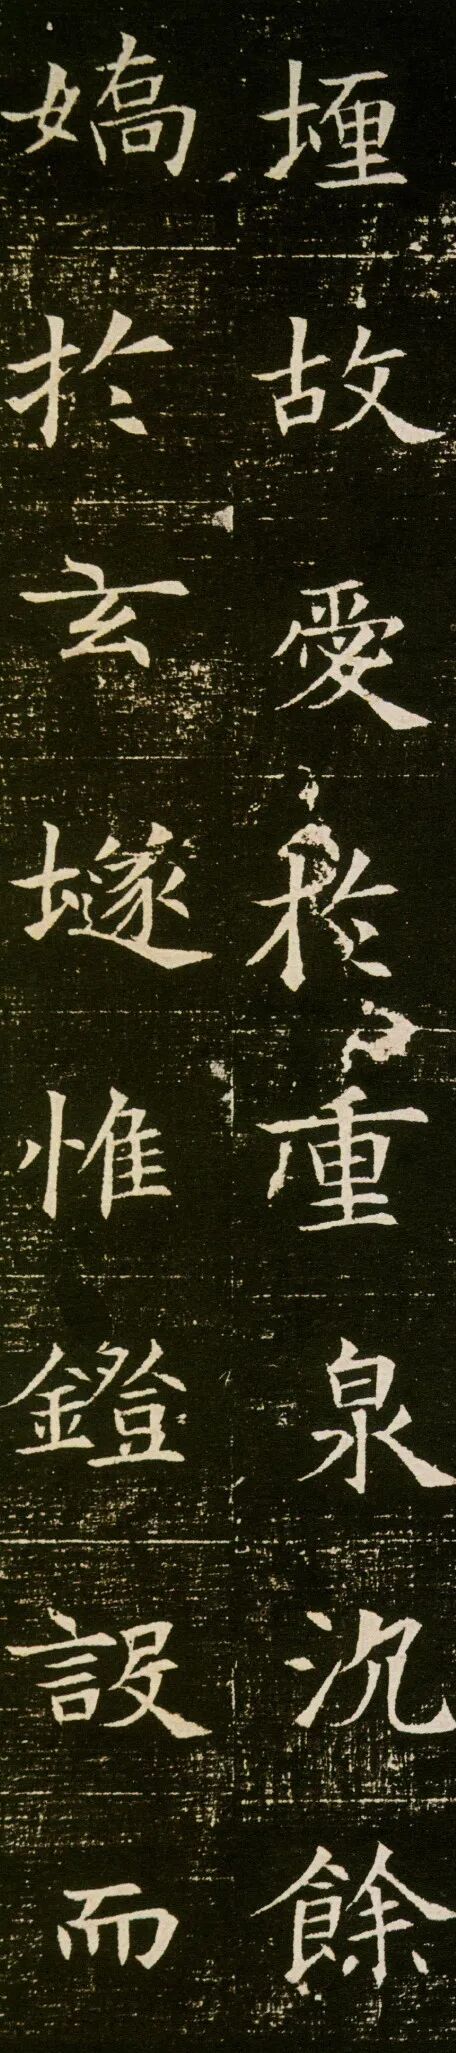 堙故愛於重泉沉餘
嬌於玄墜惟鐙設而